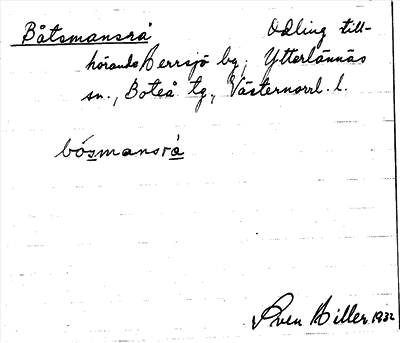 Båtsmansrå Odling till-
hörande Herrsjö by, Ytterlännäs
sn., Boteå tg., Västernorrl. l.
bósmansrå
Sven Hiller 1932